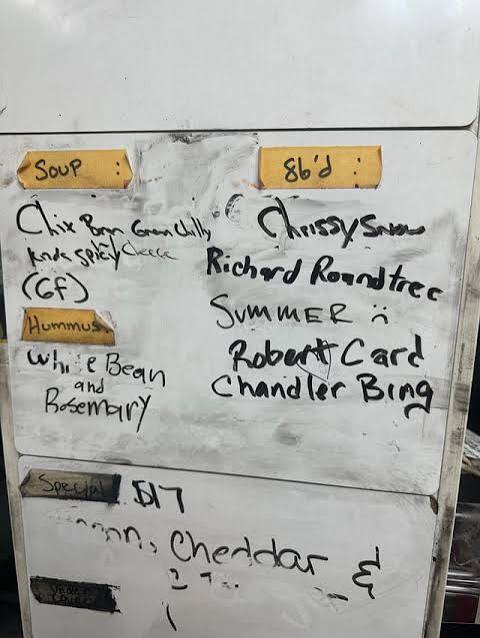 Soup :
Chix Bean Green Chilly
kinda spicy cheese
(Gf)
Hummus:
White Bean
and
Rosemary
86'd :
Chrissy Snow
Richard Roundtree
SUMMER :(
Robert Card
Chandler Bing
Special 
Cheddar &